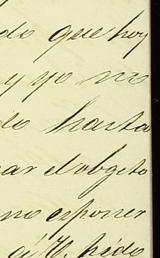 do que hoy
y yo no
do hasta
ar el obgeto
no esponer
á V. pido